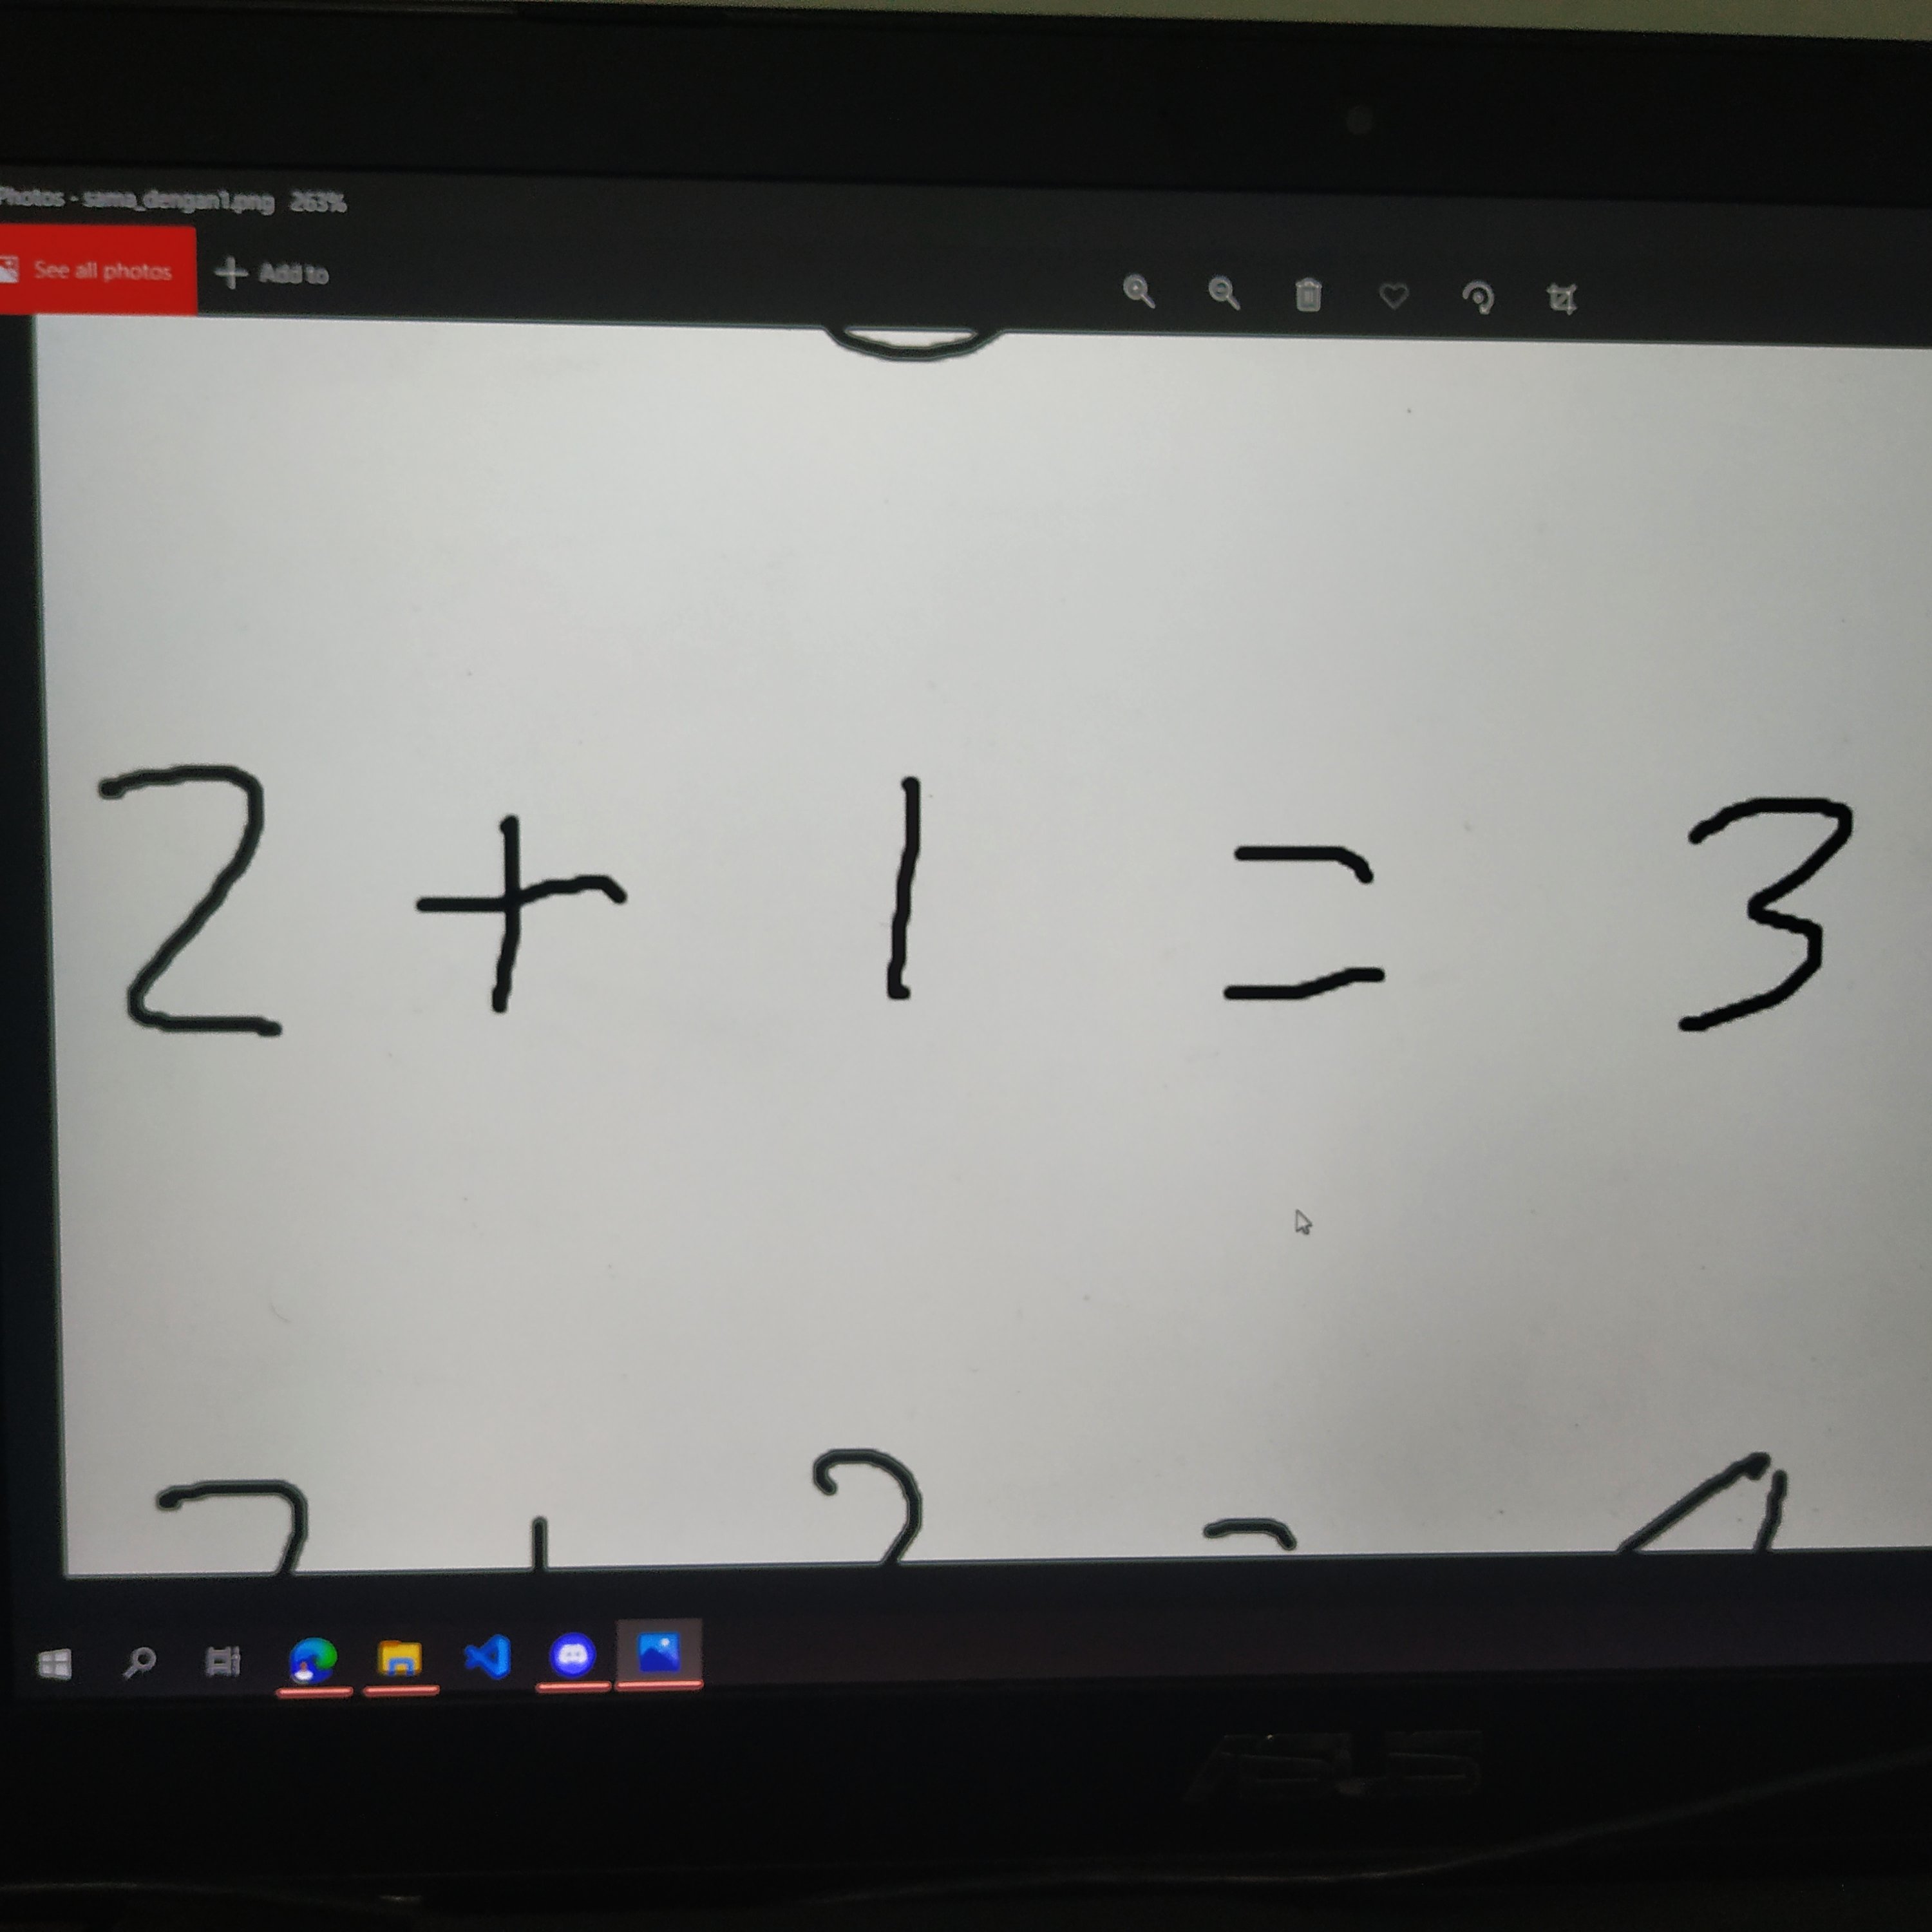 Photos - sama_dengan1.png 263%
See all photos
Add to
2 + 1 = 3
ASUS